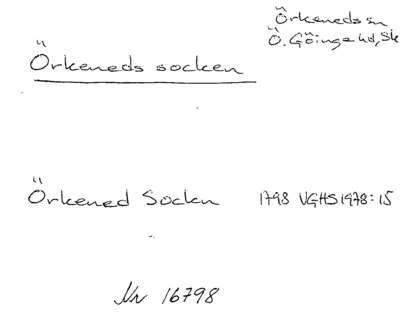 Örkeneds sn
Ö. Göinge hd, Sk
Örkeneds socken
Örkened Sockn 1798 VGHS 1978:15
Nr 16798